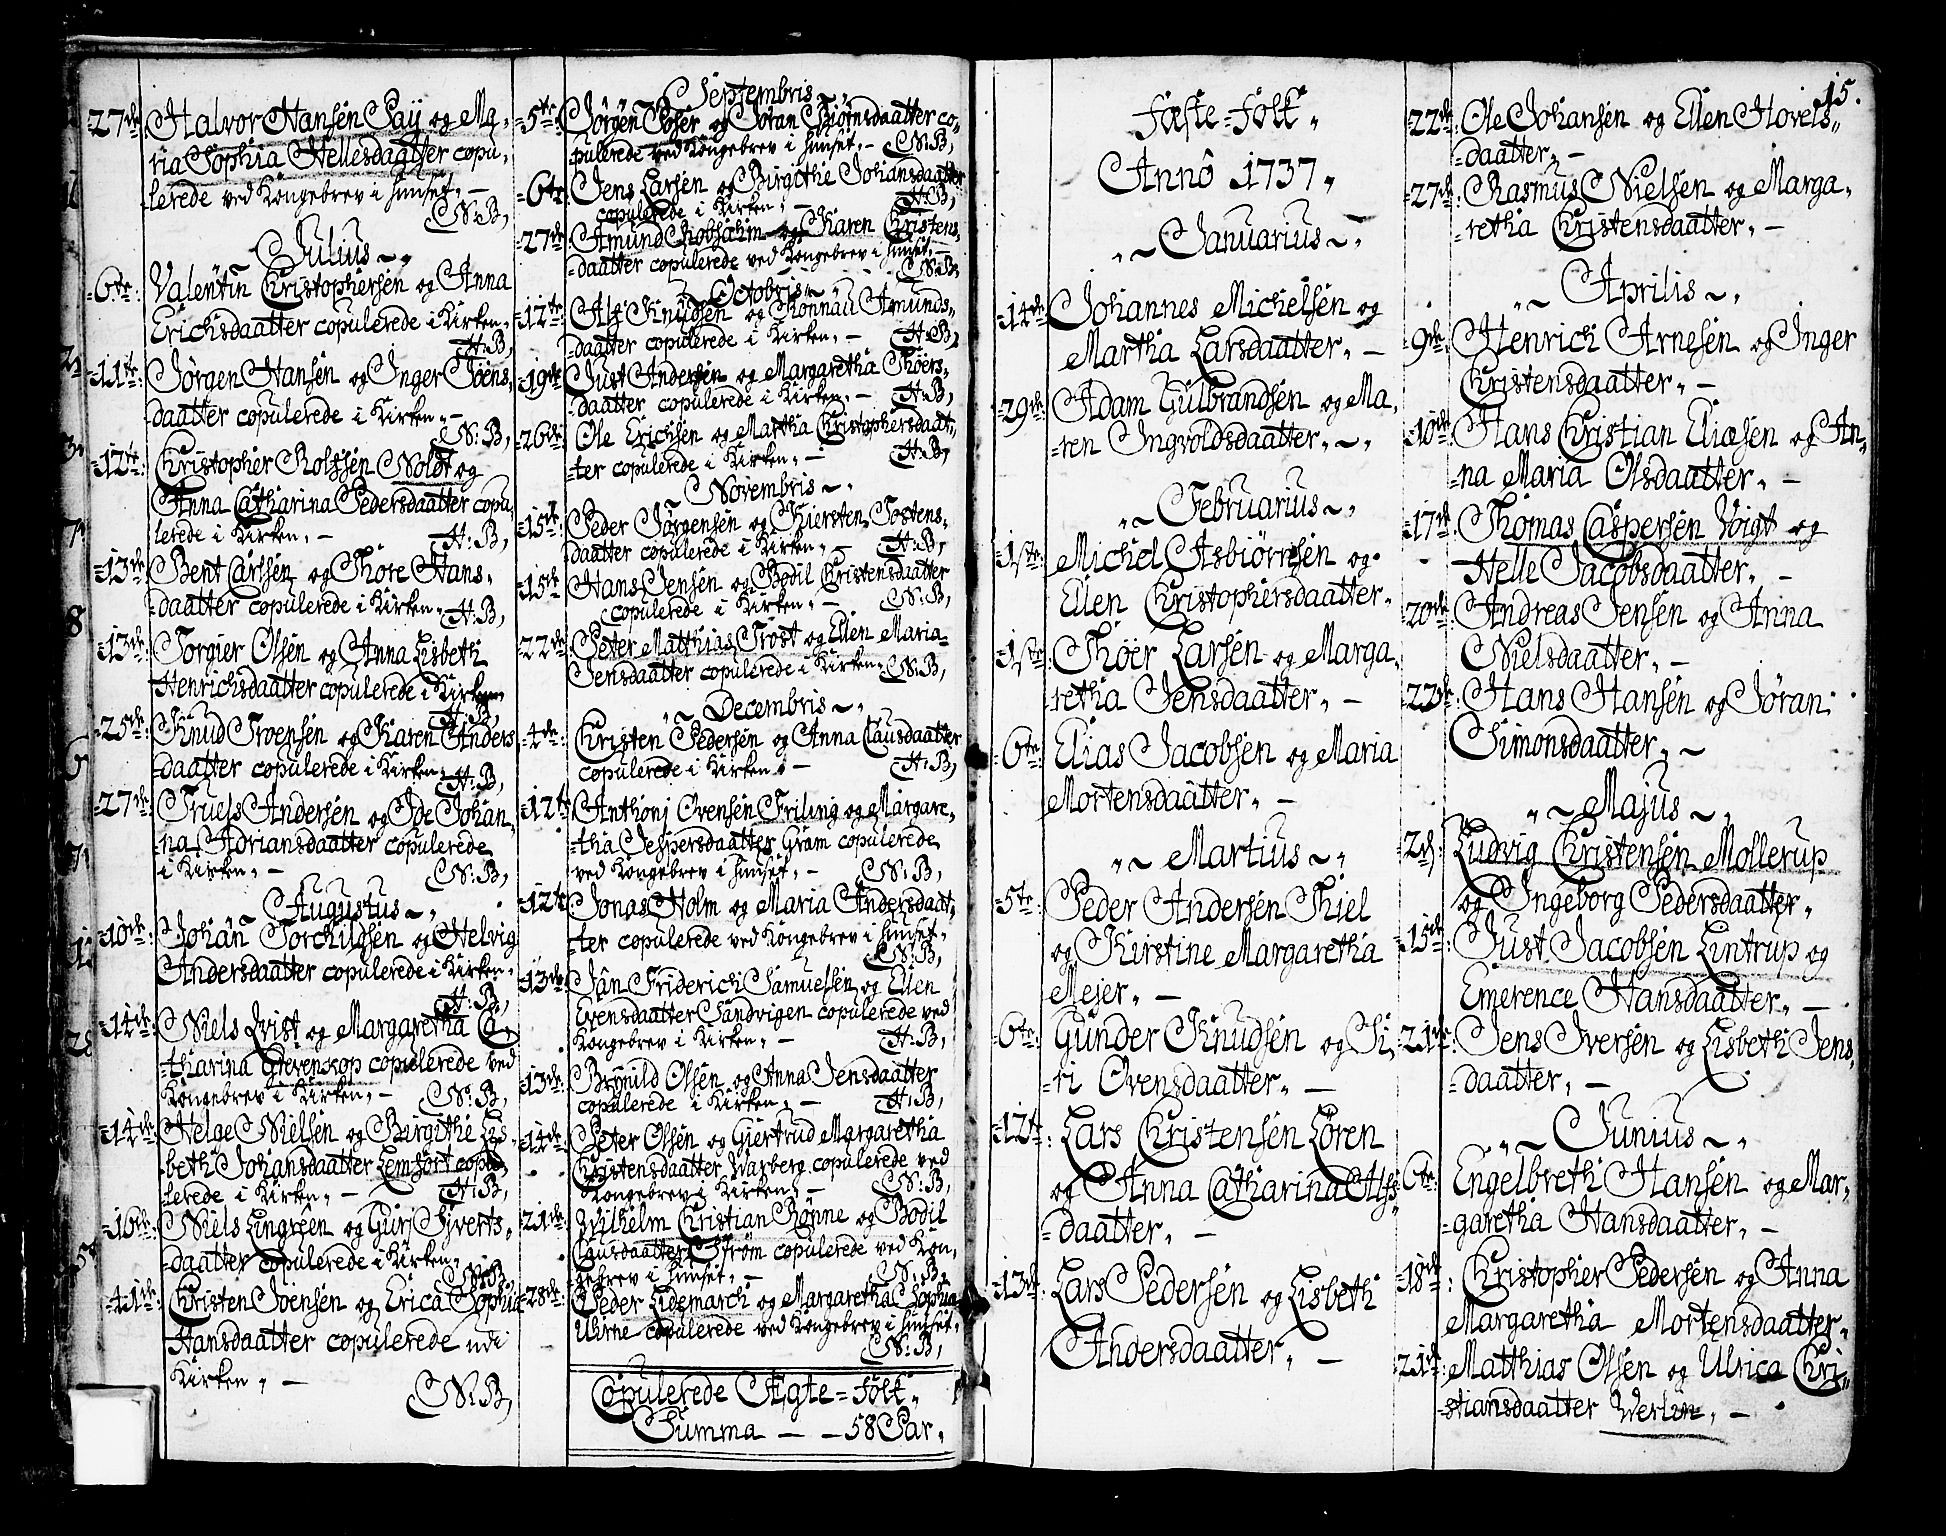 =27de Halvor Hansen Paÿ og Ma-
-ria Sophia Hellesdaatter copu-
lerede ved Kongebrev i Huuset. —
N:B,
Julius
=6te: Valentin Christophersen og Anna
Erichsdaatter copulerede i Kirken.
H:B,
=11te: Jörgen Hansen og Inger Joens-
daatter copulerede i Kirken. —
N:B,
=12te Christopher Rolssen Noldt og
Anna Catharina Pedersdaatter copu-
lerede i Kirken. —
H:B,
=13de Bent Carlsen og Thore Hans-
-daatter copulerede i Kirken.
H:B,
=13de: Torgier Olsen og Anna Lisbeth
Henrichsdaatter copulerede i Kirken
H:B,
=25de: Knud Svensen og Karen Anders
-daatter copulerede i Kirken.
H:B,
=27de: Truels Andersen og Ide Johan-
-na Adriansdaatter copulerede
i Kirken. —
N:B,
Augustus
=10de: Johan Torchildsen og Helvig
Andersdaatter copulerede i Kirken.
H:B,
=14de: Niels Qvist og Margaretha Ca-
tharina Grevenskop copulerede ved
Kongebrev i Kirken. —
N:B,
=14de: Helge Nielsen og Birgithe Lis-
beth Johansdaatter Lemfort copu-
lerede i Kirken. —
H:B,
=16de: Niels Lingreen og Guri Siverts-
-daatter copulerede i Kirken.
N:B
=41de: Christen Joensen og Erica Sophia
Hansdaatter copulerede udi
Kirken. —
N:B,
Septembris
=5te: Jörgen Poser og Joran Biörnsdaatter co-
pulerede ved Kongebrev i Huuset. —
N:B,
=6te: Jens Larsen og Birgithe Johansdaatter
copulerede i Kirken. —
H:B,
=27de: Amund Robsahm og Karen Christens-
-daatter copulerede ved Kongebrev i Huuset.
N:B,
Octobris
=12te: Alf Knudsen og Rönnau Amunds-
-daatter copulerede i Kirken. —
H:B,
=19de: Just Andersen og Margaretha Thoers-
daatter copulerede i Kirken. —
H:B,
=26de: Ole Erichsen og Martha Christophersdaat-
-ter copulerede i Kirken. —
H:B,
Novembris
=15de Peder Jörgensen og Kiersten Tostens-
daatter copulerede i Kirken. —
H:B,
=15de: Hans Jensen og Bodil Christensdaatter
copulerede i Kirken. —
N:B,
=22de: Peter Matthias Trost og Ellen Maria
Jensdaatter copulerede i Kirken.
N:B,
Decembris
=4de: Christen Pedersen og Anna Clausdaatter
copulerede i Kirken. —
H:B,
=12te Anthonj Ovensen Friling og Margare-
-tha Jespersdaatter Gram copulerede
ved Kongebrev i Huuset. —
N:B,
=12te Jonas Holm og Maria Andersdaat-
-ter copulerede ved Kongebrev i Huuset.
N:B,
=13de: Jan Friderich Samuelsen og Ellen
Evensdaatter Sandvigen copulerede ved
Kongebrev i Kirken. —
H:B,
=13de: Brÿnild Olsen og Anna Jensdaatter
copulerede i Kirken. —
H:B,
=14de: Peter Olsen og Giertrud Margaretha
Christensdaatter Warberg copulerede ved
Kongebrev i Kirken. —
N:B,
=21de: Wilhelm Christian Rönne og Bodil
Clausdaatter Ström copulerede ved Kon-
gebrev i Huuset. —
N:B,
=28de: Peder Lidemarck og Margaretha Sophia
copulerede ved Kongebrev i Huuset.
N:B,
Copulerede Ægte-Folk.
Summa — — 58 Par.
15.
Fæste-Folk.
Anno 1737.
Januarius
=14de Johannes Michelsen og
Martha Larsdaatter. —
=29de: Adam Gulbrandsen og Ma-
-ren Ingvoldsdaatter.
Februarius
=1ste: Michel Asbiörnsen og
Ellen Christophersdaatter.
=1ste: Thoer Larsen og Marga-
retha Jensdaatter. —
=6te: Elias Jacobsen og Maria
Mortensdaatter. —
Martius
=5te: Peder Andersen Thiel
og Kirstine Margaretha
Mejer. —
=6te: Gunder Knudsen og Si-
-ri Ovensdaatter. —
=12te: Lars Christensen Lören
og Anna Catharina Alfs-
-daatter. —
=13de: Lars Pedersen og Lisbeth
Andersdaatter. —
=22de: Ole Johansen og Ellen Hovels-
-daatter. —
=27de: Rasmus Nielsen og Marga-
-retha Christensdaatter. —
Aprilis
=9de: Henrich Arnesen og Inger
Christensdaatter. —
=10de: Hans Christian Eliæsen og An-
-na Maria Olsdaatter. —
=17de: Thomas Caspersen Voigt og
Helle Jacobsdaatter. —
=20de: Andreas Jensen og Anna
Nielsdaatter. —
=23de: Hans Hansen og Jöran
Simonsdaatter. —
Majus
=2den: Ludvig Christensen Mollerup
og Ingeborg Pedersdaatter.
=15de: Just Jacobsen Lintrup og
Emerence Hansdaatter. —
=21de: Jens Iversen og Lisbeth Jens-
-daatter. —
Junius
=6te: Engelbreth Hansen og Mar-
-garetha Hansdaatter. —
=18de: Christopher Pedersen og Anna
Margaretha Mortensdaatter.
=21de: Matthias Olsen og Ulrica Chri-
-stiansdaatter Werlin. —